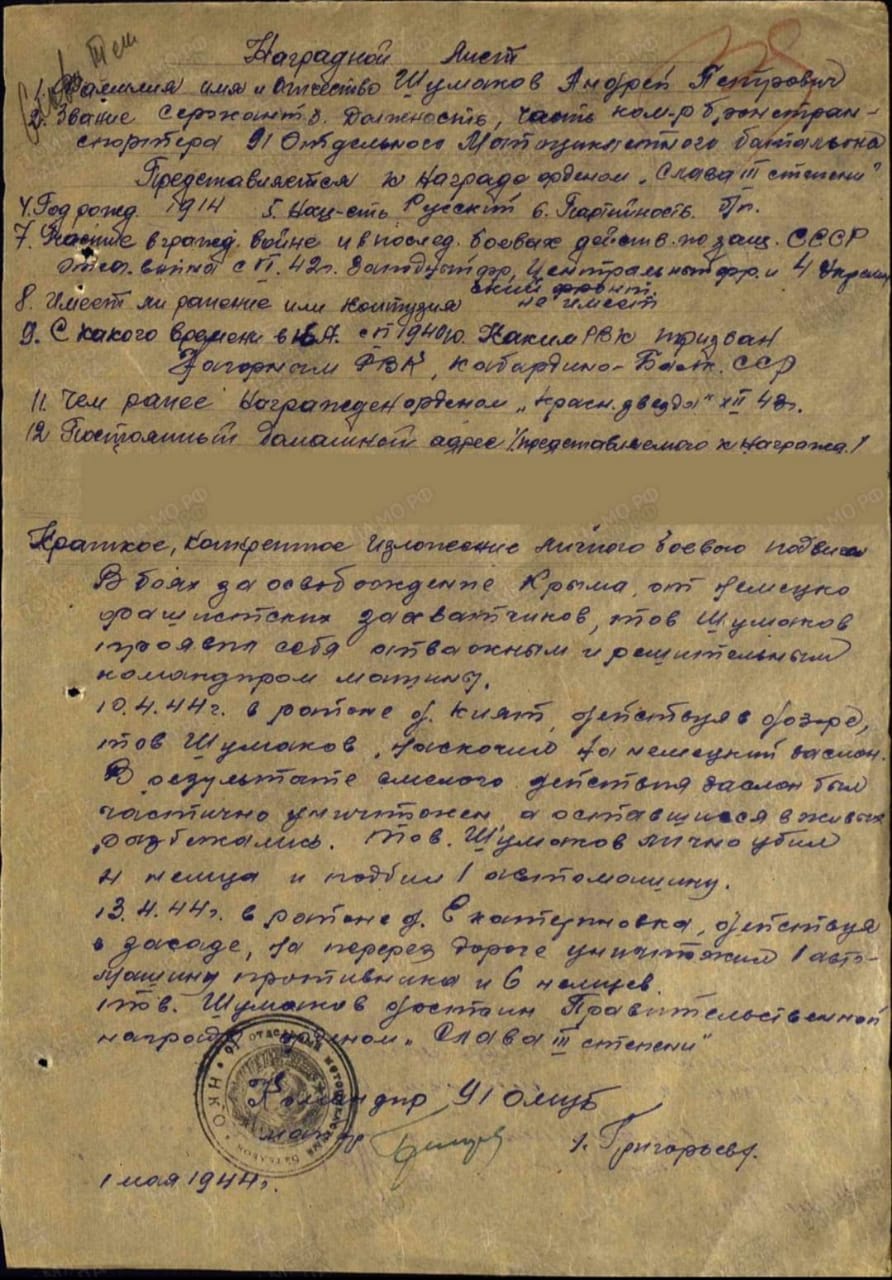 Наградной Лист
1. Фамилия имя и Отчество Шумаков Андрей Петрович
2. Звание Сержант 3. Должность, часть ком-р бронетран-
спортера 91 Отдельного Мотоциклетного батальона
Представляется к Награде орденом „Слава III степени"
4. Год рожд. 1914 5. Нац-сть Русский 6. Партийность. б/п.
7. Участие в гражд. войне и в послед. боевых действ. по защ. СССР
Отеч. война с VI. 42г. Западный фр, Центральный фр. и 4 Украин
ский фронт.
8. Имеет ли ранение или контузия не имеет
9. С какого времени в КА. с 1940го. Каким РВК призван
Нагорным РВК, Кабардино-Балк. ССР
11. Чем ранее Награжден орденом „Красн. звезда" XII 42г.
12 Постоянный домашний адрес (представляемого к награжд.)
Краткое, конкретное изложение личного боевого подвига
В боях за освобождение Крыма, от немецко
фашистских захватчиков, тов Шумаков
проявил себя отважным и решительным
командиром машины.
10.4.44г. в районе д. Кият, действуя в дозоре,
тов Шумаков, наскочил на немецкий заслон.
В результате смелого действия заслон был
частично уничтожен, а оставшиеся в живых
разбежались. тов. Шумаков лично убил
4 немца и подбил 1 автомашину.
13.4.44г. в районе д. Екатериновка, действуя
в засаде, на перерез дороге уничтожил 1 авто-
машину противника и 6 немцев.
тов. Шумаков достоин Правительственной
награды орденом „Слава III степени"
Командир 91 омцб
майор /. Григорьев/.
1 мая 1944г.